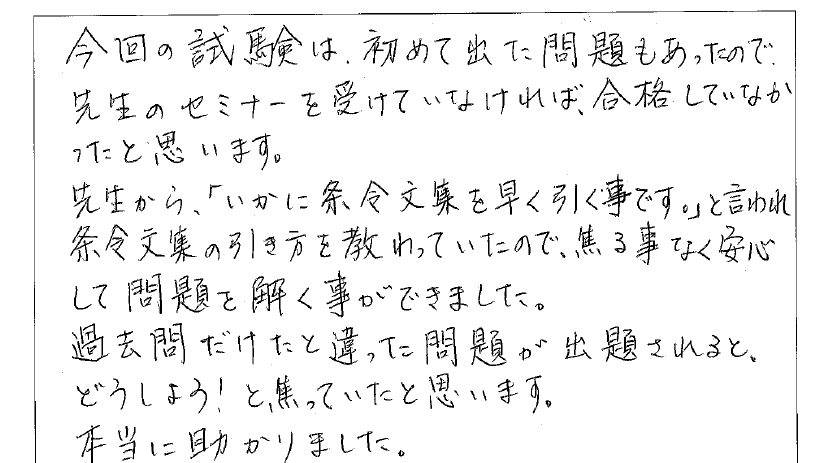 今回の試験は、初めて出た問題もあったので、
先生のセミナーを受けていなければ、合格していなか
ったと思います。
先生から、「いかに条令文集を早く引く事です。」と言われ
条令文集の引き方を教わっていたので、焦る事なく安心
して問題を解く事ができました。
過去問だけたと違った問題が出題されると、
どうしよう！と焦っていたと思います。
本当に助かりました。